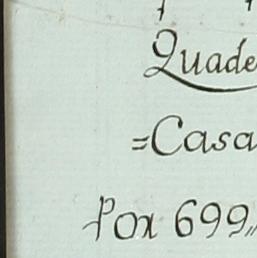 Quade
=Casa
Por 699,,